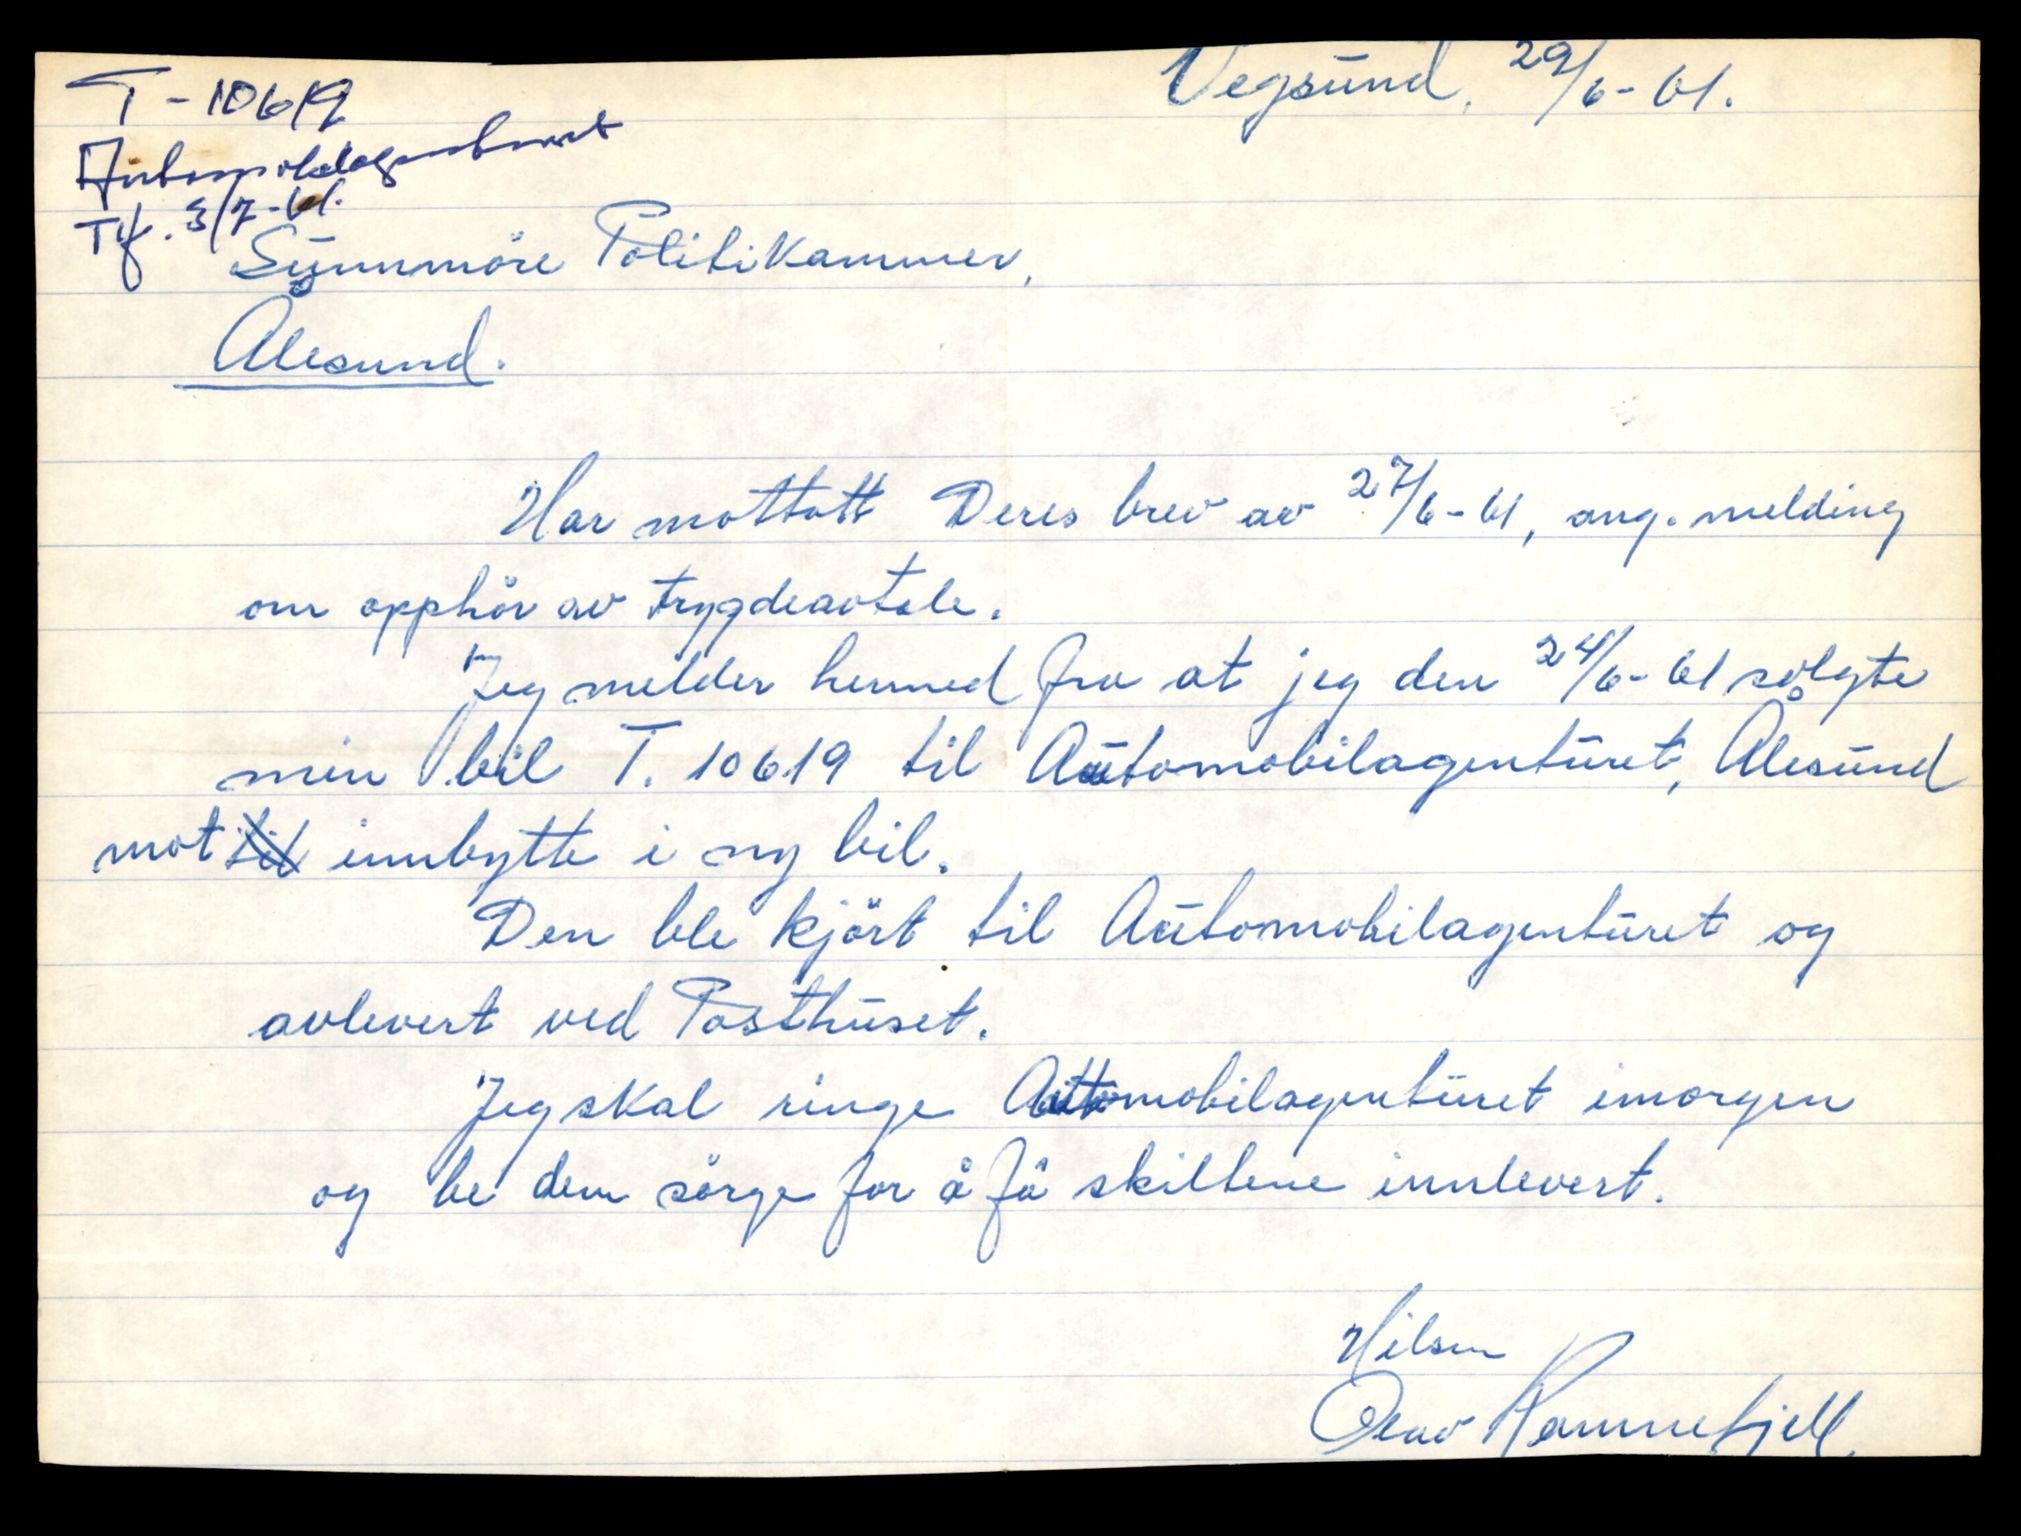 Vegsund, 29/6-61.
T-10619
Automobilagenturet
Tlf. 3/7-61.
Synnmöre Politikammer,
Ålesund.
Har mottatt Deres brev av 27/6-61, ang. melding
om opphör av trygdeavtale.
Jeg melder herved fra at jeg den 24/6-61 solgte
min bil T. 10619 til Automobilagenturet, Ålesund
mot til innbytte i ny bil.
Den ble kjört til Automobilagenturet og
avlevert ved Posthuset.
Jeg skal ringe Automobilagenturet imorgen
og be dem sörge for å få skiltene innlevert.
Hilsen
Olav Ramnefjell